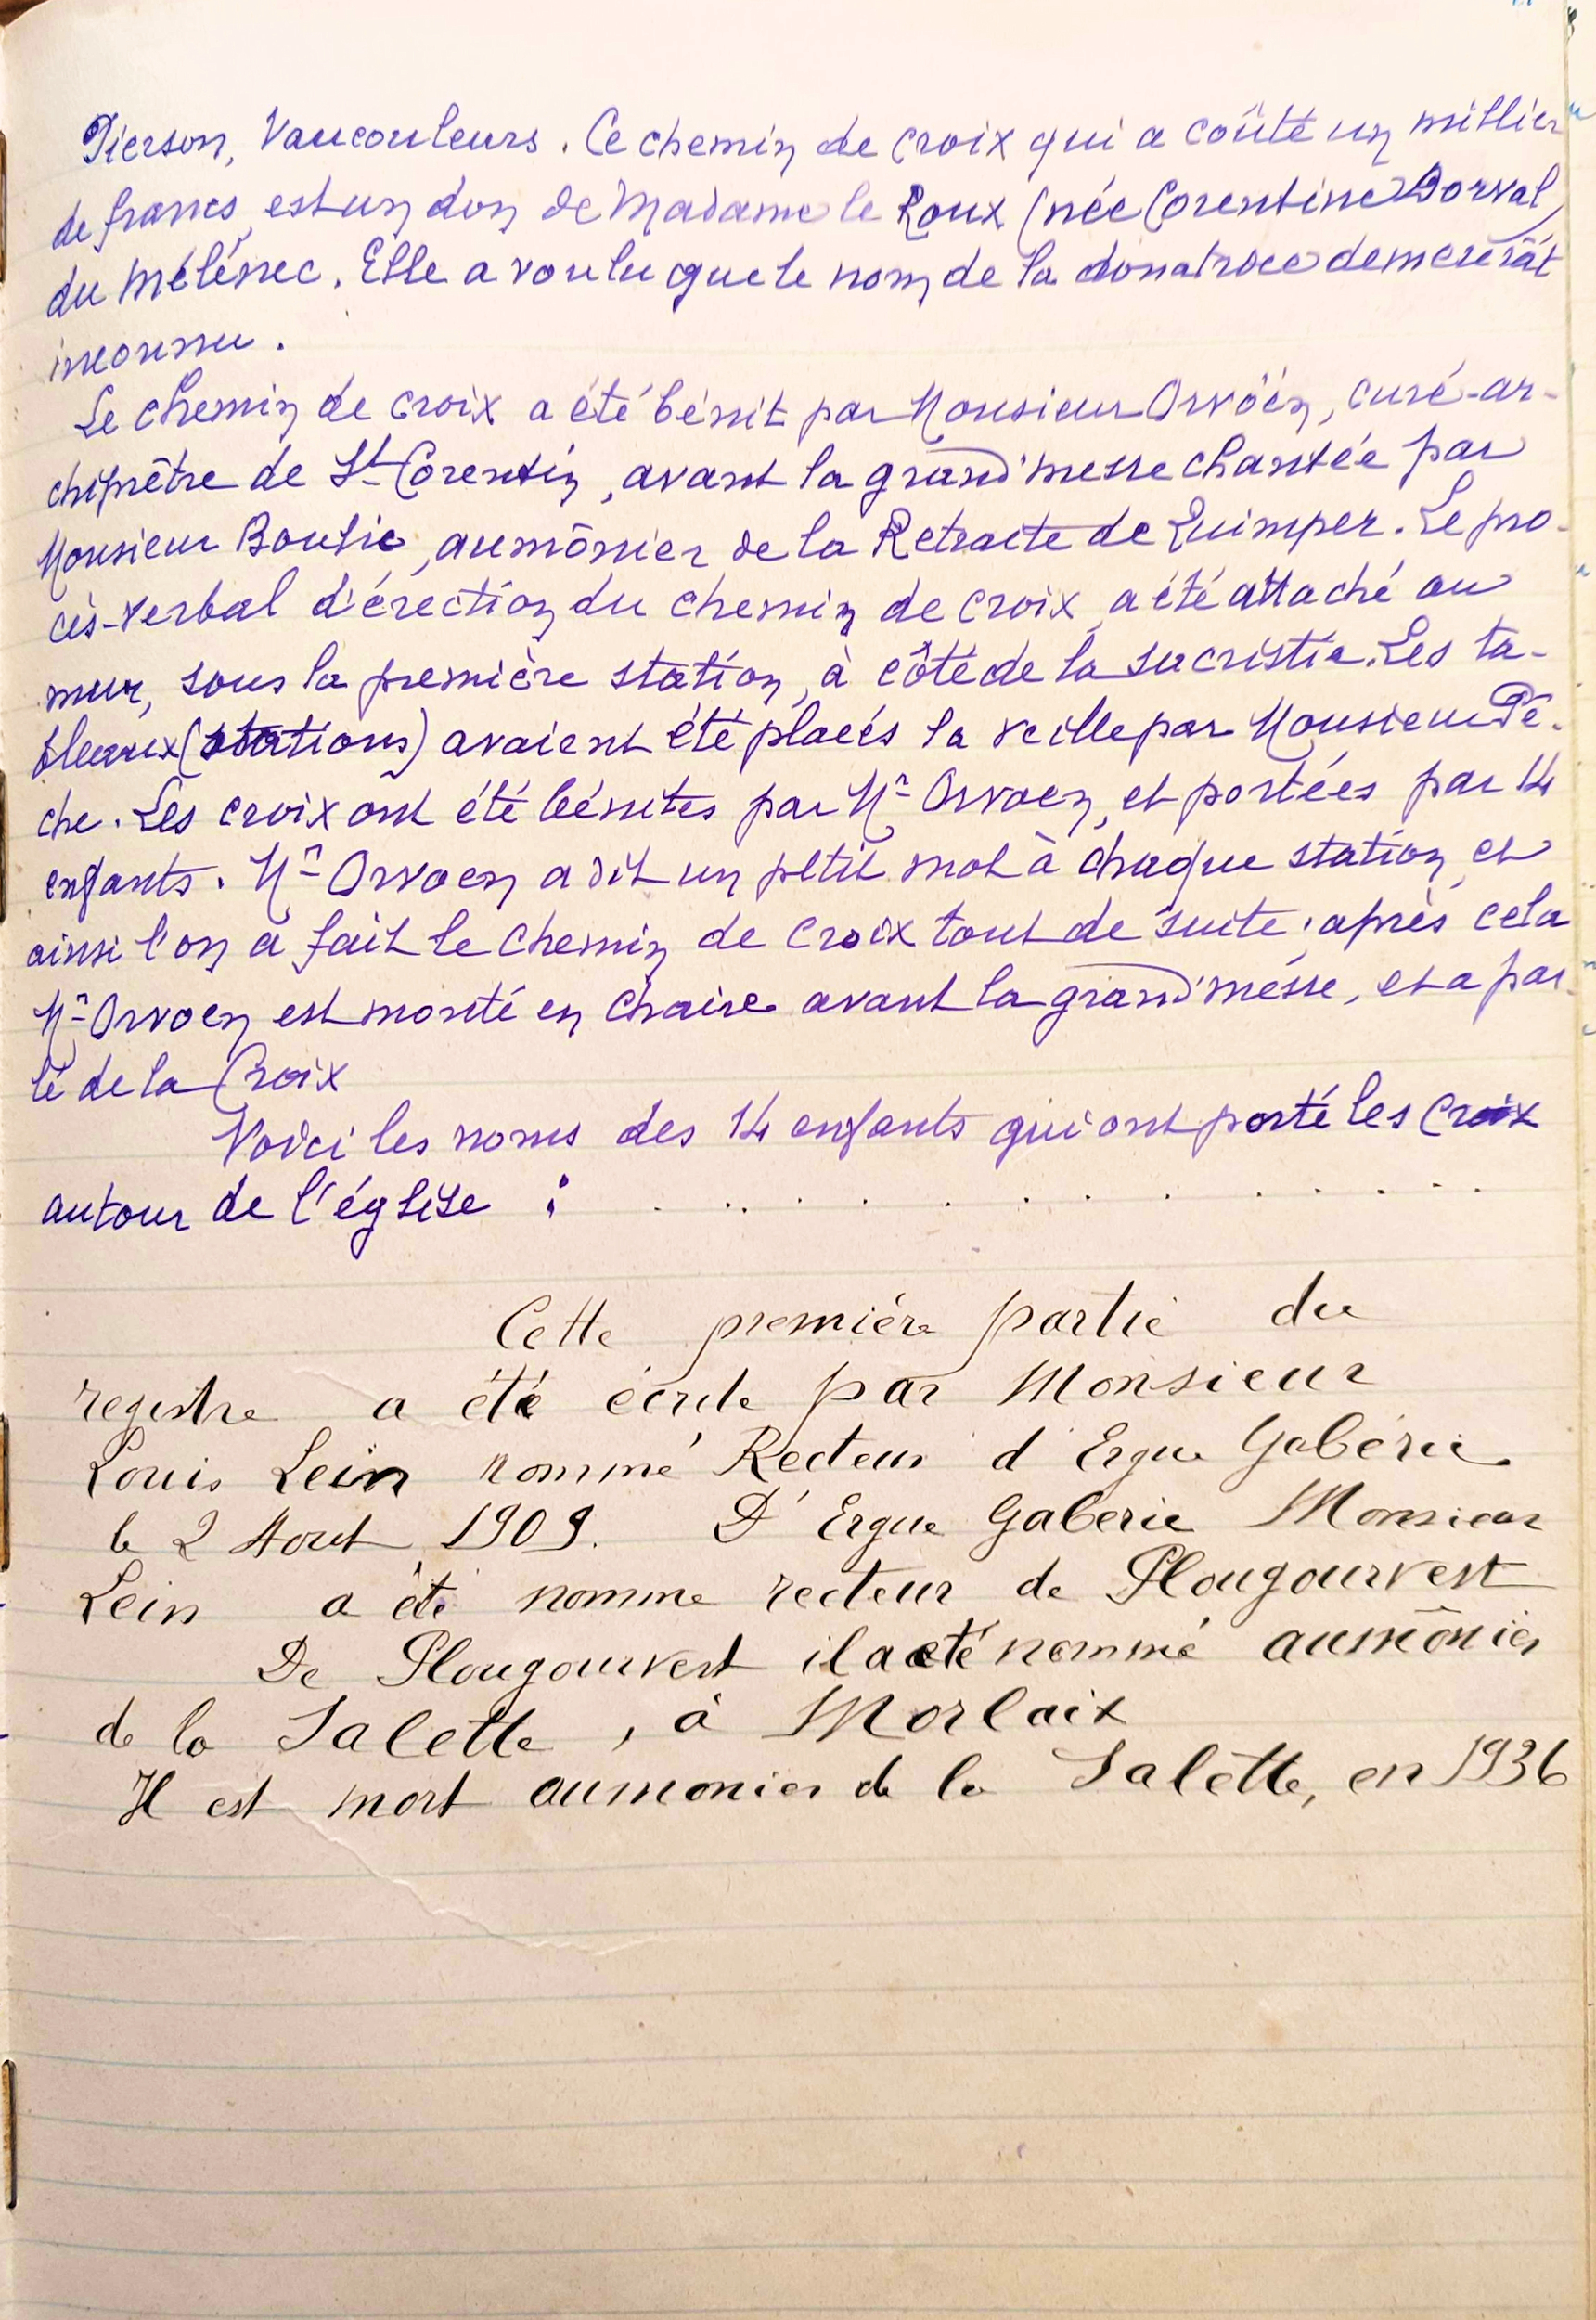 Pierson, Vaucouleurs. Ce chemin de croix qui a coûté un millier
de francs, est un don de Madame le Roux (née Corentine Dorval,
du Mélénec. Elle a voulu que le nom de la donatrice demeurât
inconnu.
Le chemin de croix a été bénit par Monsieur Orvöen, curé-ar-
chiprêtre de St Corentin, avant la grand'messe chantée par
Monsieur Boutie, aumônier de la Retraite de Quimper. Le pro-
cès-verbal d'érection du chemin de croix, a été attaché au
mur, sous la première station, à côté de la sacristie. Les ta-
bleaux (stations) avaient été placés la veille par Monsieur Pé-
che. Les croix ont été bénites par Mr Orvoen, et portées par 14
enfants. Mr Orvoen a dit un petit mot à chaque station, et
ainsi l'on a fait le chemin de croix tout de suite; après cela
Mr Orvoen est monté en chaire avant la grand'messe, et a par-
lé de la Croix
Voici les noms des 14 enfants qui ont porté les croix
autour de l'église : . . . . . . . . . . . . .
Cette première partie du
registre a été écrite par Monsieur
Louis Lein nommé Recteur d'Ergue Gabéric
le 2 Aout 1909. D'Ergue Gaberic Monsieur
Lein a été nomme recteur de Plougourvest
De Plougourvest il a été nommé aumônier
de la Salette, à Morlaix
Il est mort aumonier de la Salette, en 1936